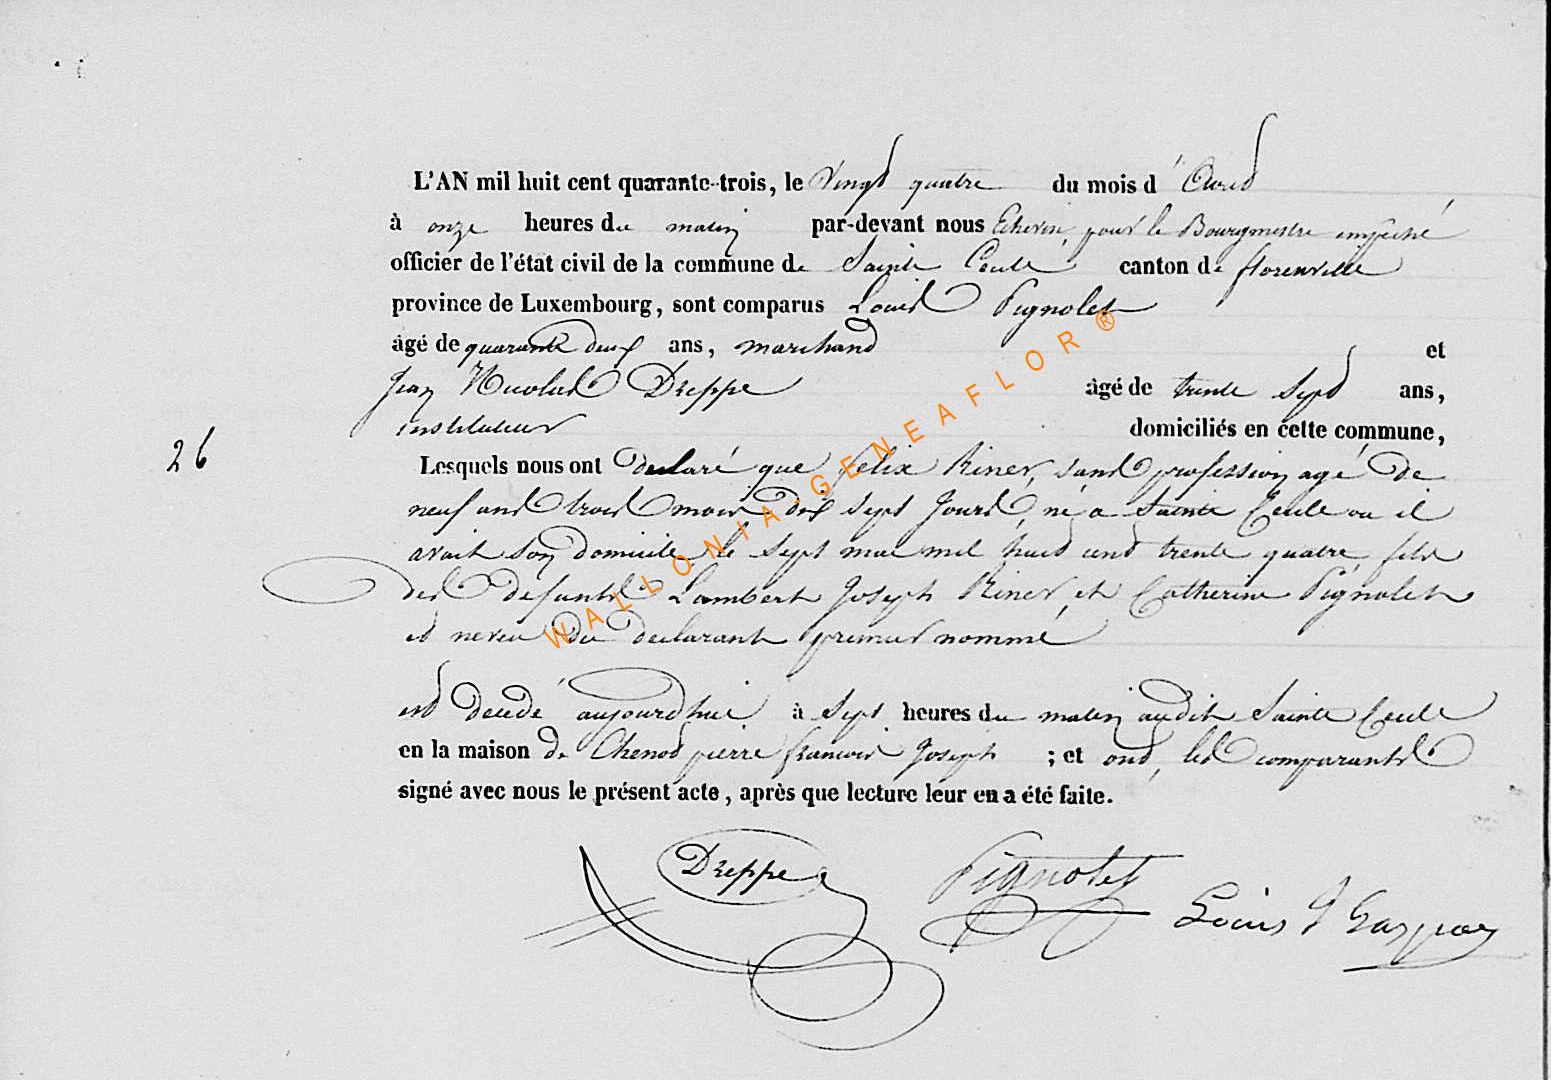 L'AN mil huit cent quarante-trois, le Vingt quatre du mois d'Aout
à onze heures du matin par-devant nous Echevin, pour le Bourgmestre empeché
officier de l'état civil de la commune de Sainte Cecile canton de florenville
province de Luxembourg, sont comparus Louis Pignolet
âgé de quarante deux ans, marchand et
Jean Nicolas Dreppe âgé de trente Sept ans,
instituteur domiciliés en cette commune,
26
Lesquels nous ont declaré que felix Riner, sans profession agé de
neuf ans trois mois dix sept Jours, né a Sainte Cecile ou il
avait son domicile, le sept mai mil huit cent trente quatre, fils
des defunts Lambert Joseph Riner et Catherine Pignolet
et neveu du declarant premier nommé
est decedé aujourdhui à Sept heures du matin audit Sainte Cecile
en la maison de Chenot pierre francois Joseph ; et ont, les comparants
signé avec nous le présent acte, après que lecture leur en a été faite.
Dreppe Pignolet Louis J Gaspar
WALLONIA-GENEAFLOR®